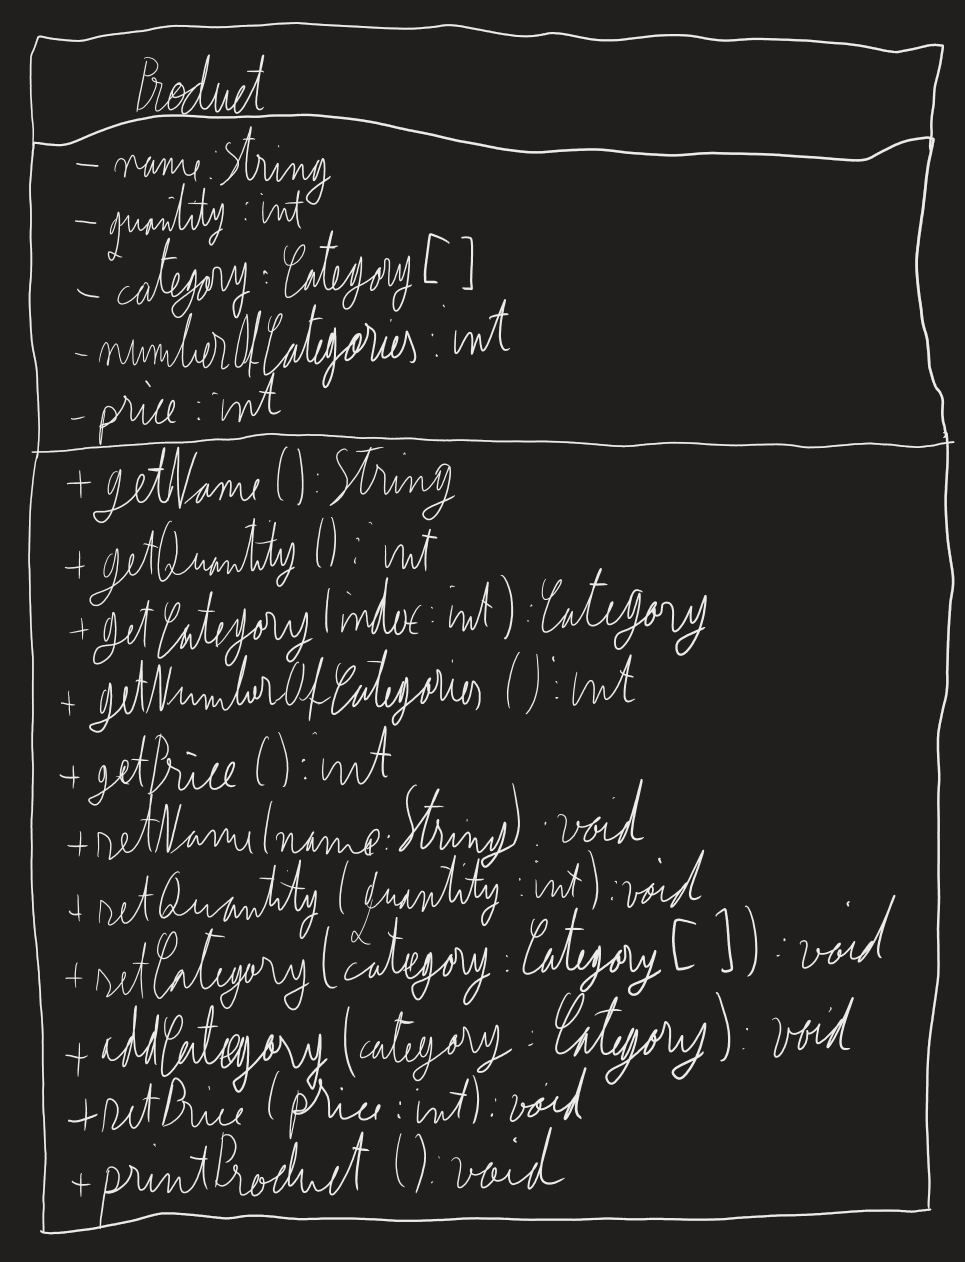 Product
- name : String
- quantity : int
- category : Category []
- numberOfCategories : int
- price : int
+ getName () : String
+ getQuantity () : int
+ getCategory (index : int) : Category
+ getNumberOfCategories () : int
+ getPrice () : int
+ setName (name : String) : void
+ setQuantity (quantity : int) : void
+ setCategory (category : Category [ ]) : void
+ addCategory (category : Category) : void
+ setPrice (price : int) : void
+ printProduct () : void